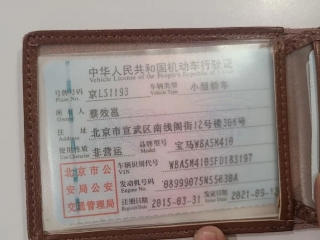 中华人民共和国机动车行驶证
Vehicle License of the People's Republic of China
号牌号码 京LS1193 车辆类型 小型轿车
Plate No. Vehicle Type
所有人 蔡效邕
Owner
住址 北京市宣武区南线阁街12号楼364号
Address
使用性质 非营运 品牌型号 宝马WBA5M410
Use Character
北京市公 车辆识别代号 WBA5M4105FD183197
VIN
安局公安 发动机号码 08999075N5503BA
交通管理局 注册日期 2015-03-31 发证日期 2021-09-1